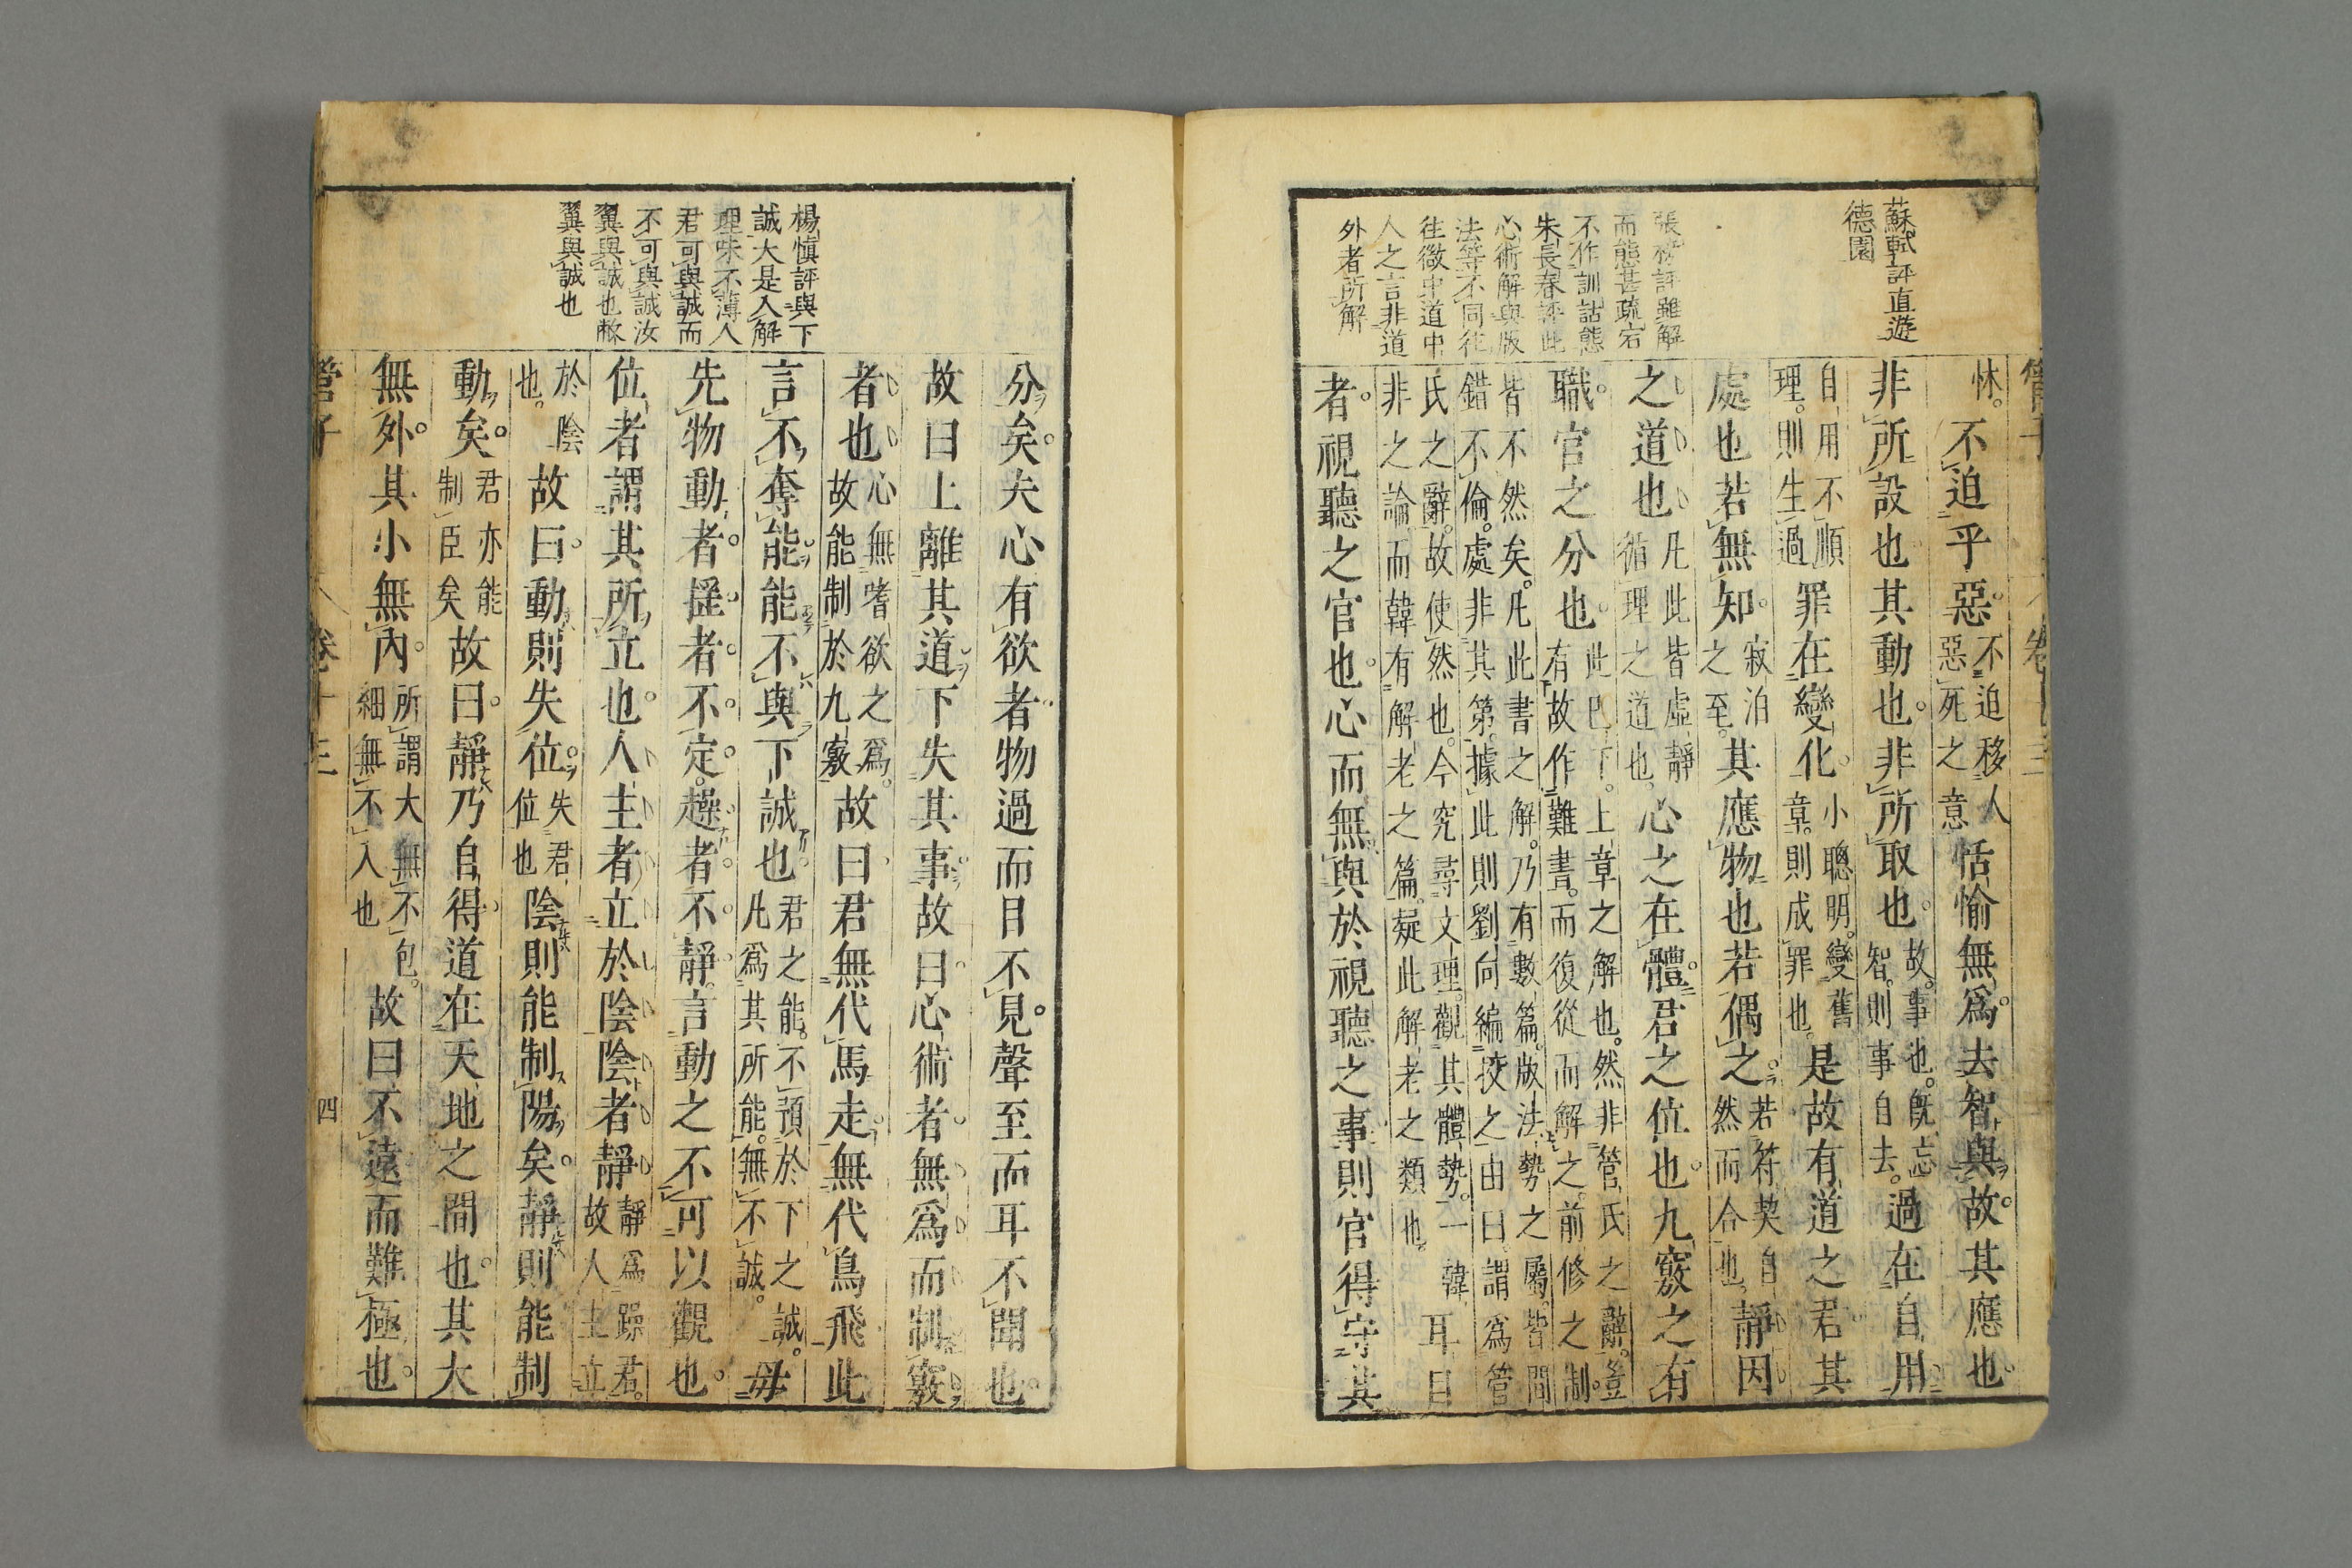 蘇軾評直遊
德園
張榜評雖解
而態甚疏宕
不作訓詁態
朱長春評此
心術解與版
法等不同徃
徃徴中道中
人之言非道
外者所解
管子 卷十三
怵。不迫乎惡。不迫移人惡死之意恬愉無爲。去智與故。其應也。
非所設也其動也。非所取也。故。事也。旣忘智。則事自去。過在自用。
自用不順理。則生過罪在變化。小聰明。變舊章。則成罪也。是故有道之君。其
處也若無知。寂泊之至。其應物也若偶之。若符契自然而合也。靜因
之道也凡此皆虛靜循理之道也。心之在體。君之位也。九竅之有
職。官之分也。此已下。上章之解也。然非管氏之辭。豈有故作難書。而復從而解之。前修之制。
皆不然矣。凡此書之解。乃有數篇。版法勢之屬。皆間錯不倫。處非其第。據此則劉向編挍之由曰。謂爲管
氏之辭。故使然也。今究尋文理。觀其體勢。一韓非之論。而韓有解老之篇。疑此解老之類也。耳目
者。視聽之官也。心而無與於視聽之事則官得守其
分矣。夫心有欲者。物過而目不見。聲至而耳不聞也。
故曰上離其道下失其事。故曰。心術者。無爲而制竅
者也心無嗜欲之爲。故能制於九竅故曰君無代馬走。無代鳥飛此
言不奪能能不與下誠也。君之能。不預於下之誠。凡爲其所能。無不誠。毋
先物動者。搖者。不定。趮者。不靜。言動之不可以觀也。
位者謂其所立也。人主者立於陰陰者靜靜爲躁君。故人主立
於陰也。故曰。動則失位。失君位也陰則能制陽矣。靜則能制
動矣。君亦能制臣矣故曰。靜乃自得道在天地之間也。其大
無外。其小無內。所謂大無不包。細無不入也故曰不遠而難極也。
楊愼評與下
誠大是入解
理味不薄人
君可與誠而
不可與誠汝
翼與誠也
翼與誠也
管子 卷十三 四